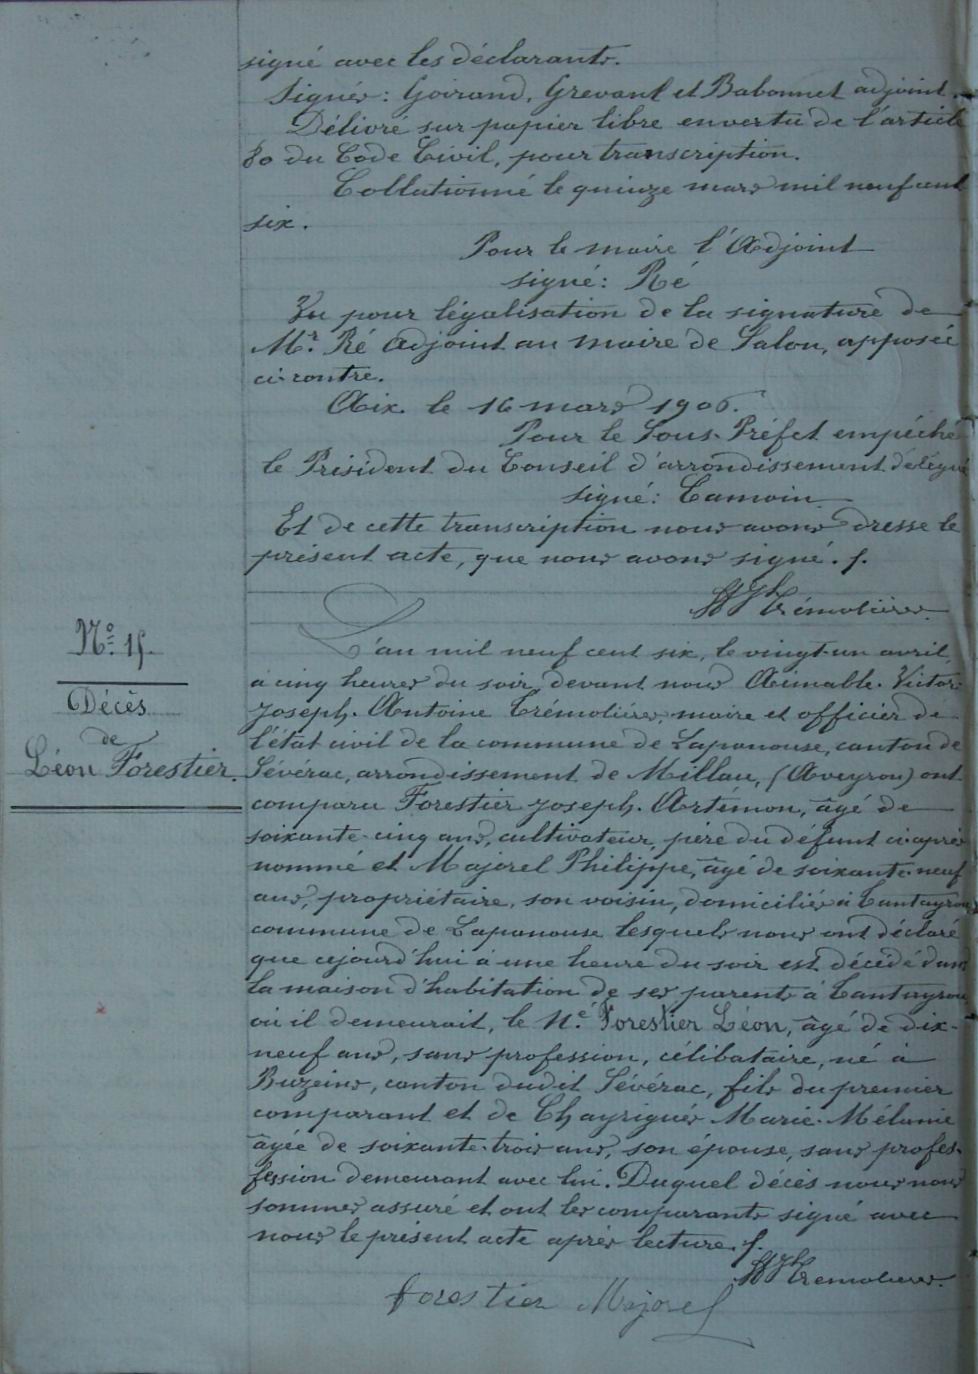 signé avec les déclarants.
Signés : Goirand, Grevant et Babonnet adjoint.
Délivré sur papier libre en vertu de l'article
80 du Code Civil, pour transcription.
Collationné le quinze mars mil neuf cent
six.
Pour le maire l'Adjoint
signé : Ré
Vu pour légalisation de la signature de
Mr. Ré Adjoint au maire de Salon, apposée
ci-contre.
Aix le 16 mars 1906.
Pour le Sous-Préfet empêché
le Président du Conseil d'arrondissement délégué
signé : Camoin
Et de cette transcription nous avons dressé le
présent acte, que nous avons signé.
Trémolières.
No. 15.
Décès
de
Léon Forestier.
L'an mil neuf cent six, le vingt-un avril,
à cinq heures du soir, devant nous Aimable-Victor
Joseph-Antoine Trémolières, maire et officier de
l'état civil de la commune de Lapanouse, canton de
Sévérac, arrondissement de Millau, (Aveyron) ont
comparu Forestier Joseph-Artémon, âgé de
soixante-cinq ans, cultivateur, père du défunt ci-après
nommé et Majorel Philippe, âgé de soixante-neuf
ans, propriétaire, son voisin, domiciliés à Cantayrou
commune de Lapanouse lesquels nous ont déclaré
que cejourd'hui à une heure du soir est décédé dans
la maison d'habitation de ses parents à Cantayrou
où il demeurait, le Né Forestier Léon, âgé de dix-
neuf ans, sans profession, célibataire, né à
Buzeins, canton dudit Sévérac, fils du premier
comparant et de Chayrigués Marie-Mélanie
âgée de soixante-trois ans, son épouse, sans profes-
fession demeurant avec lui. Duquel décès nous nous
sommes assuré et ont les comparants signé avec
nous le présent acte après lecture.
Tremolieres.
forestier Majorel